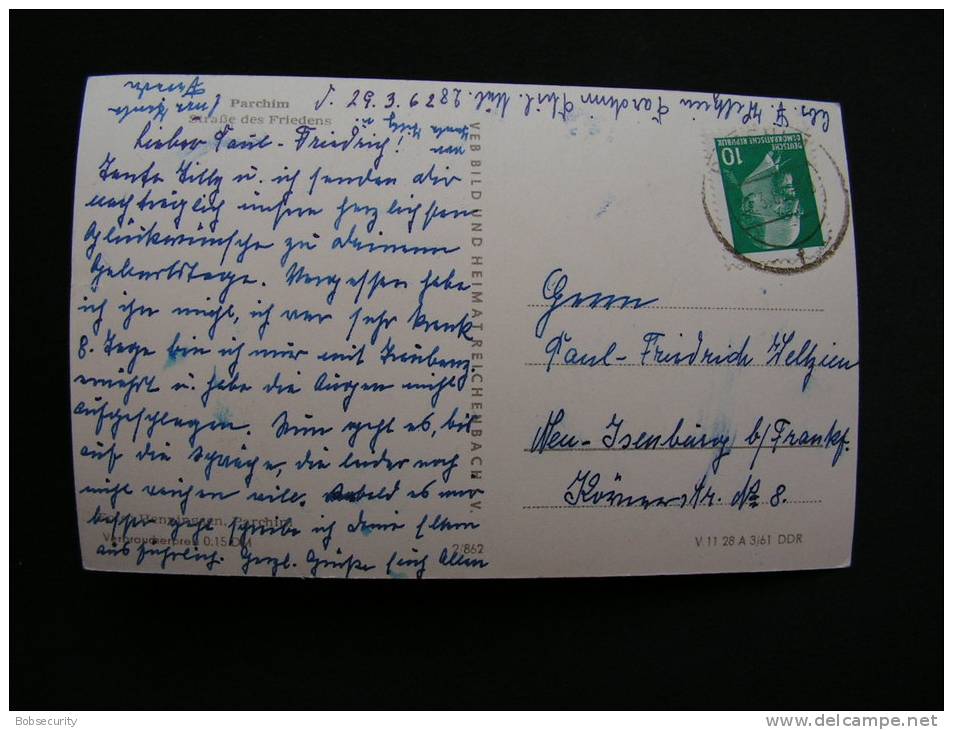 Parchim
Straße des Friedens
d. 29.3.62
Lieber Paul-Friedrich!
Tante Tilly u. ich senden dir
nachträglich unsere herzlichsten
Glückwünsche zu deinem
Geburtstage. Vergessen habe
ich ihn nicht, ich war sehr krank,
8. Tage bin ich nur mit Traubenz.
ernährt u. habe die Augen nicht
aufgeschlagen. Nun geht es, bis
auf die Sprache, die leider noch
nicht will. Sobald es mir
besser geht schreibe ich deine Eltern
ausführlich. Herzl. Grüße Euch Allen
Foto: Henningsen, Parchim
Verbraucherpreis 0.15 DM
2/862
VEB BILD UND HEIMAT REICHENBACH I. V.
DEUTSCHE
DEMOKRATISCHE REPUBLIK
10
Herrn
Paul-Friedrich Weltzien
Neu-Isenburg b/Frankf.
Körnerstr. No 8.
V 11 28 A 3/61 DDR
Bobsecurity
www.delcampe.net